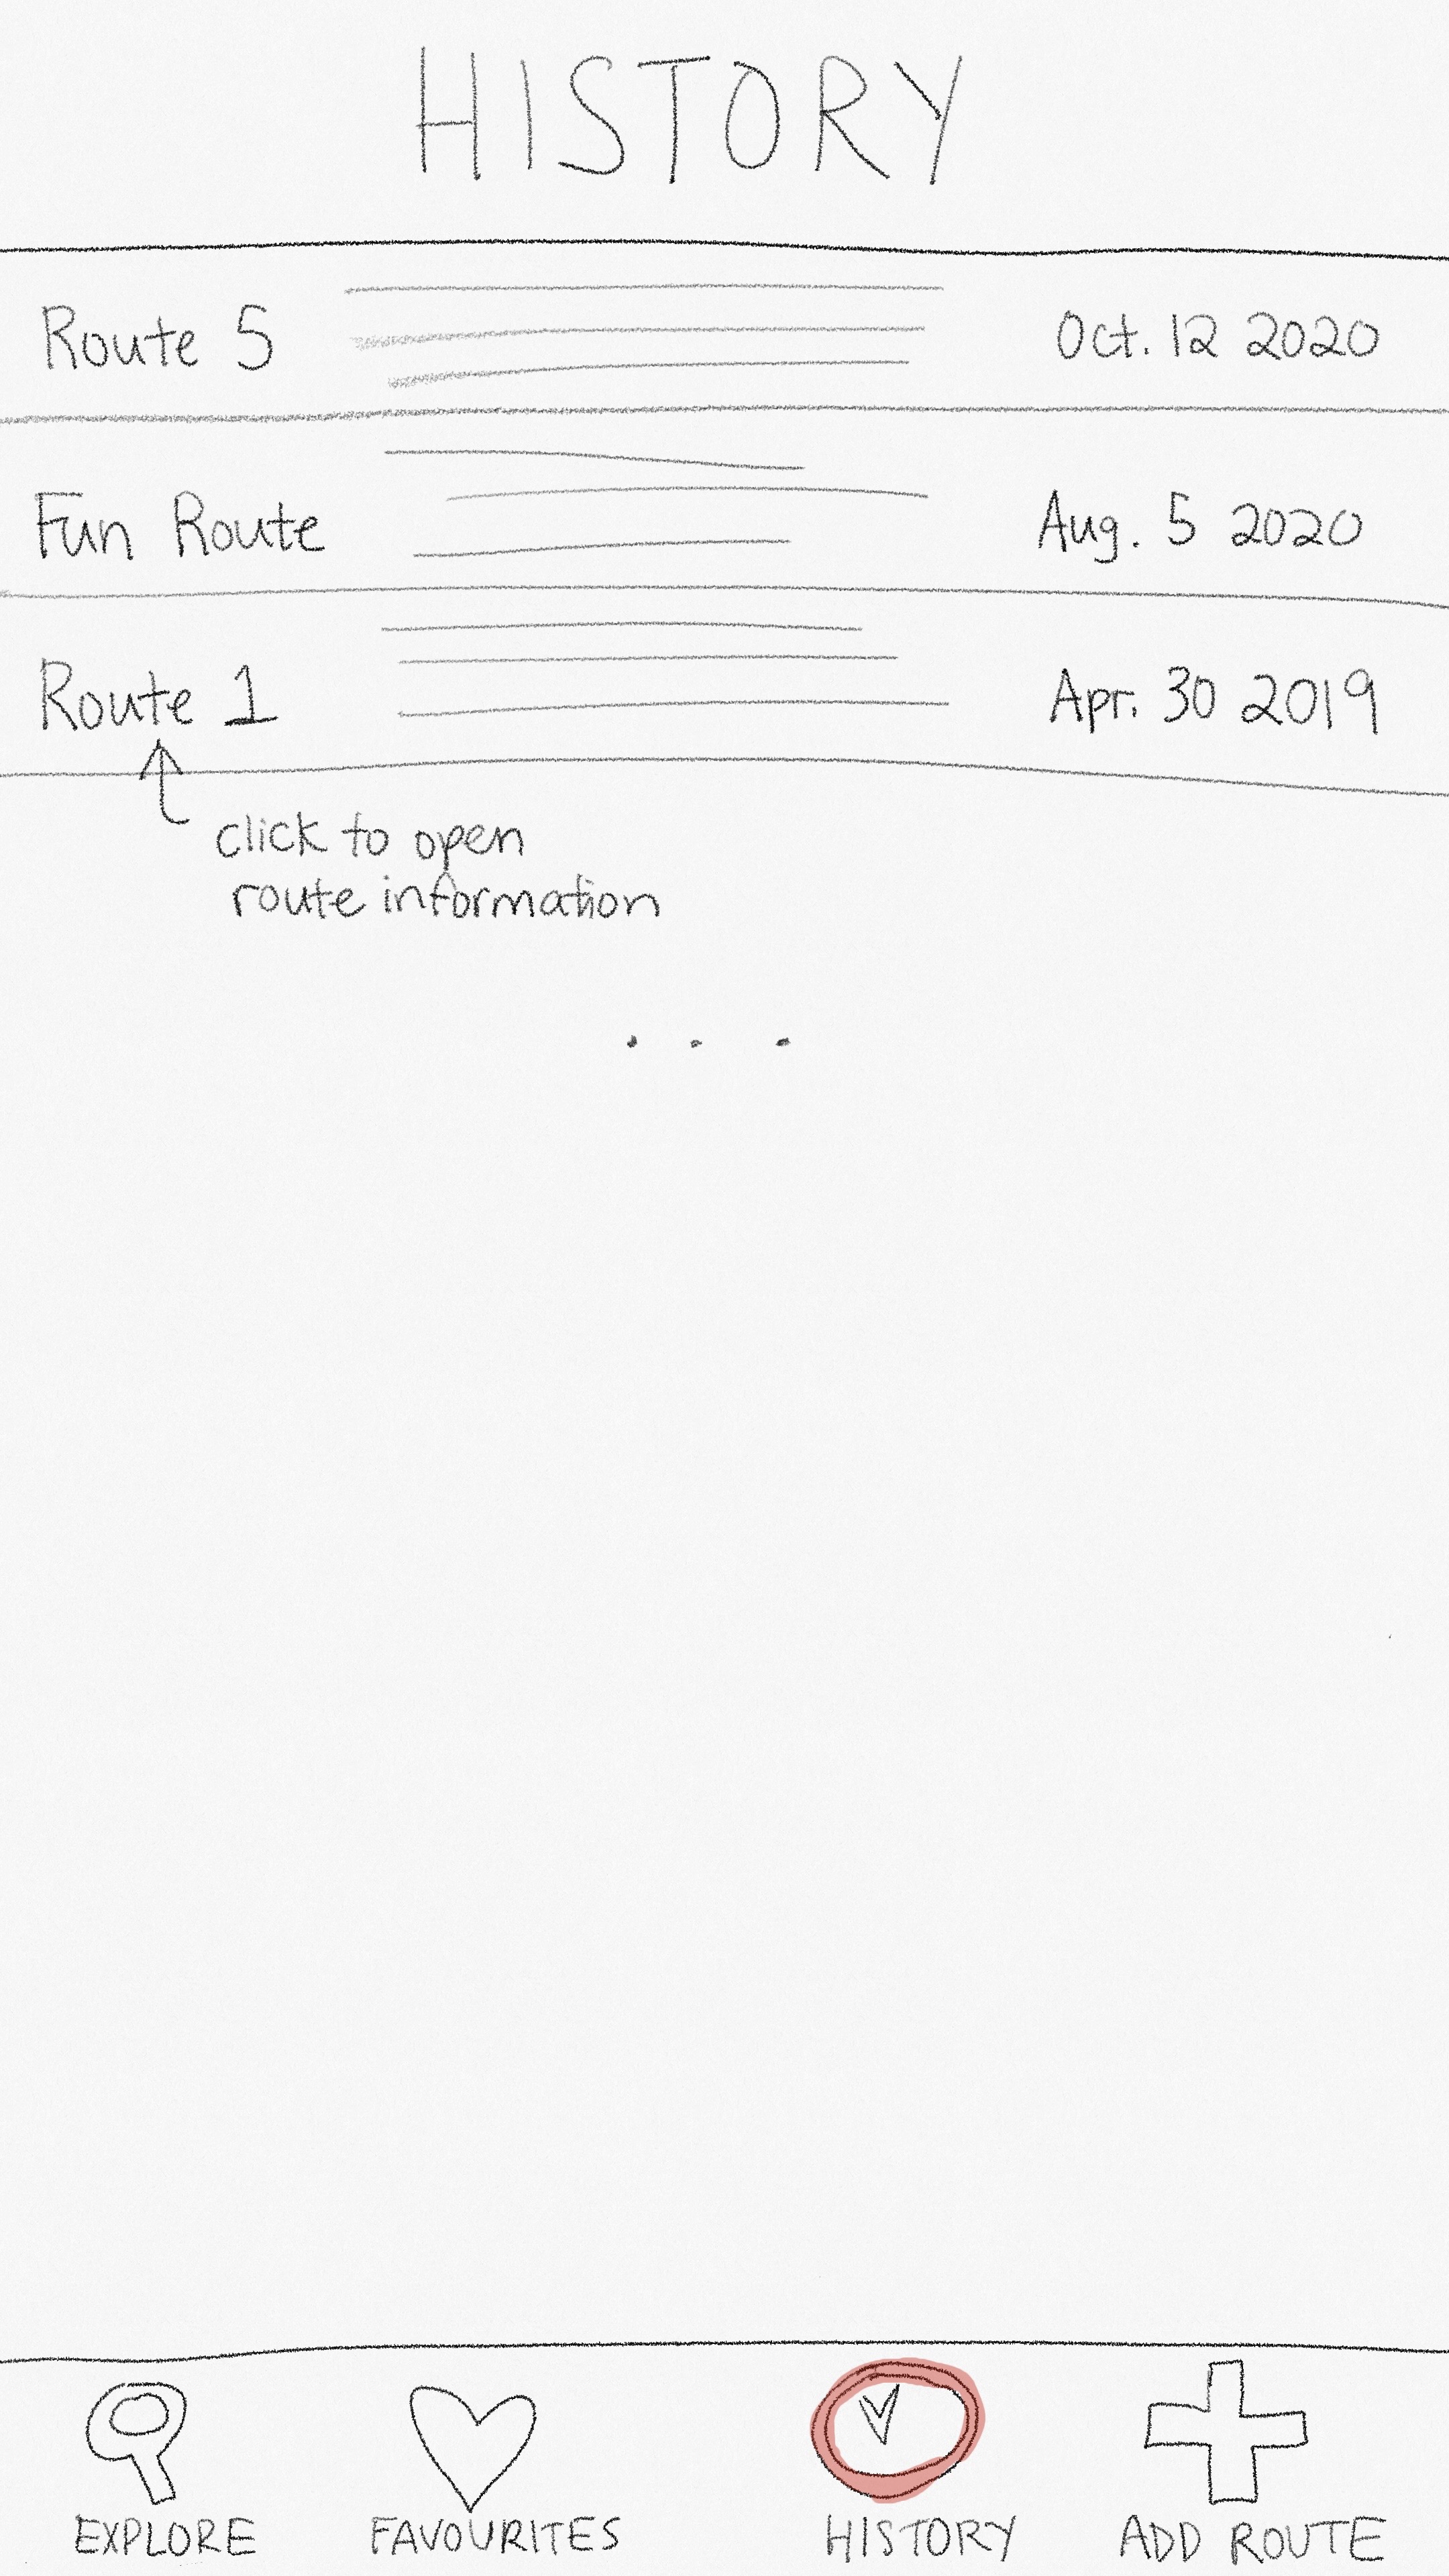 HISTORY
Route 5 Oct. 12 2020
Fun Route Aug. 5 2020
Route 1 Apr. 30 2019
click to open
route information
. . .
EXPLORE FAVOURITES HISTORY ADD ROUTE